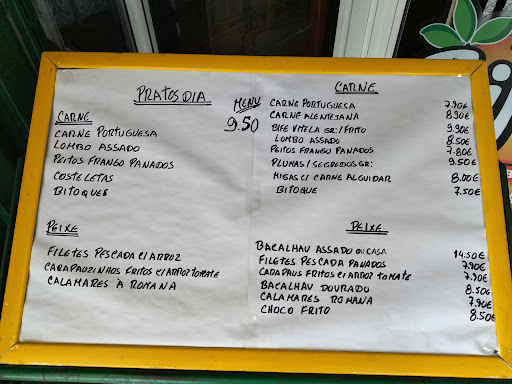 PRATOS DIA
MENU
9.50
CARNE
CARNE PORTUGUESA
LOMBO ASSADO
PEITOS FRANGO PANADOS
COSTELETAS
BITOQUES
PEIXE
FILETES PESCADA C/ ARROZ
CARAPAOZINHOS FRITOS C/ ARROZ TOMATE
CALAMARES À ROMANA
CARNE
CARNE PORTUGUESA 7.90€
CARNE ALENTEJANA 8.90€
BIFE VITELA GR:/FRITO 9.90€
LOMBO ASSADO 8.50€
PEITOS FRANGO PANADOS 7.80€
PLUMAS/SEGREDOS GR: 9.50€
MIGAS C/ CARNE ALGUIDAR 8.00€
BITOQUE 7.50€
PEIXE
BACALHAU ASSADO OU CASA 14.50€
FILETES PESCADA PANADOS 7.90€
CARAPAUS FRITOS C/ ARROZ TOMATE 7.90€
BACALHAU DOURADO 8.50€
CALAMARES ROMANA 7.90€
CHOCO FRITO 8.50€